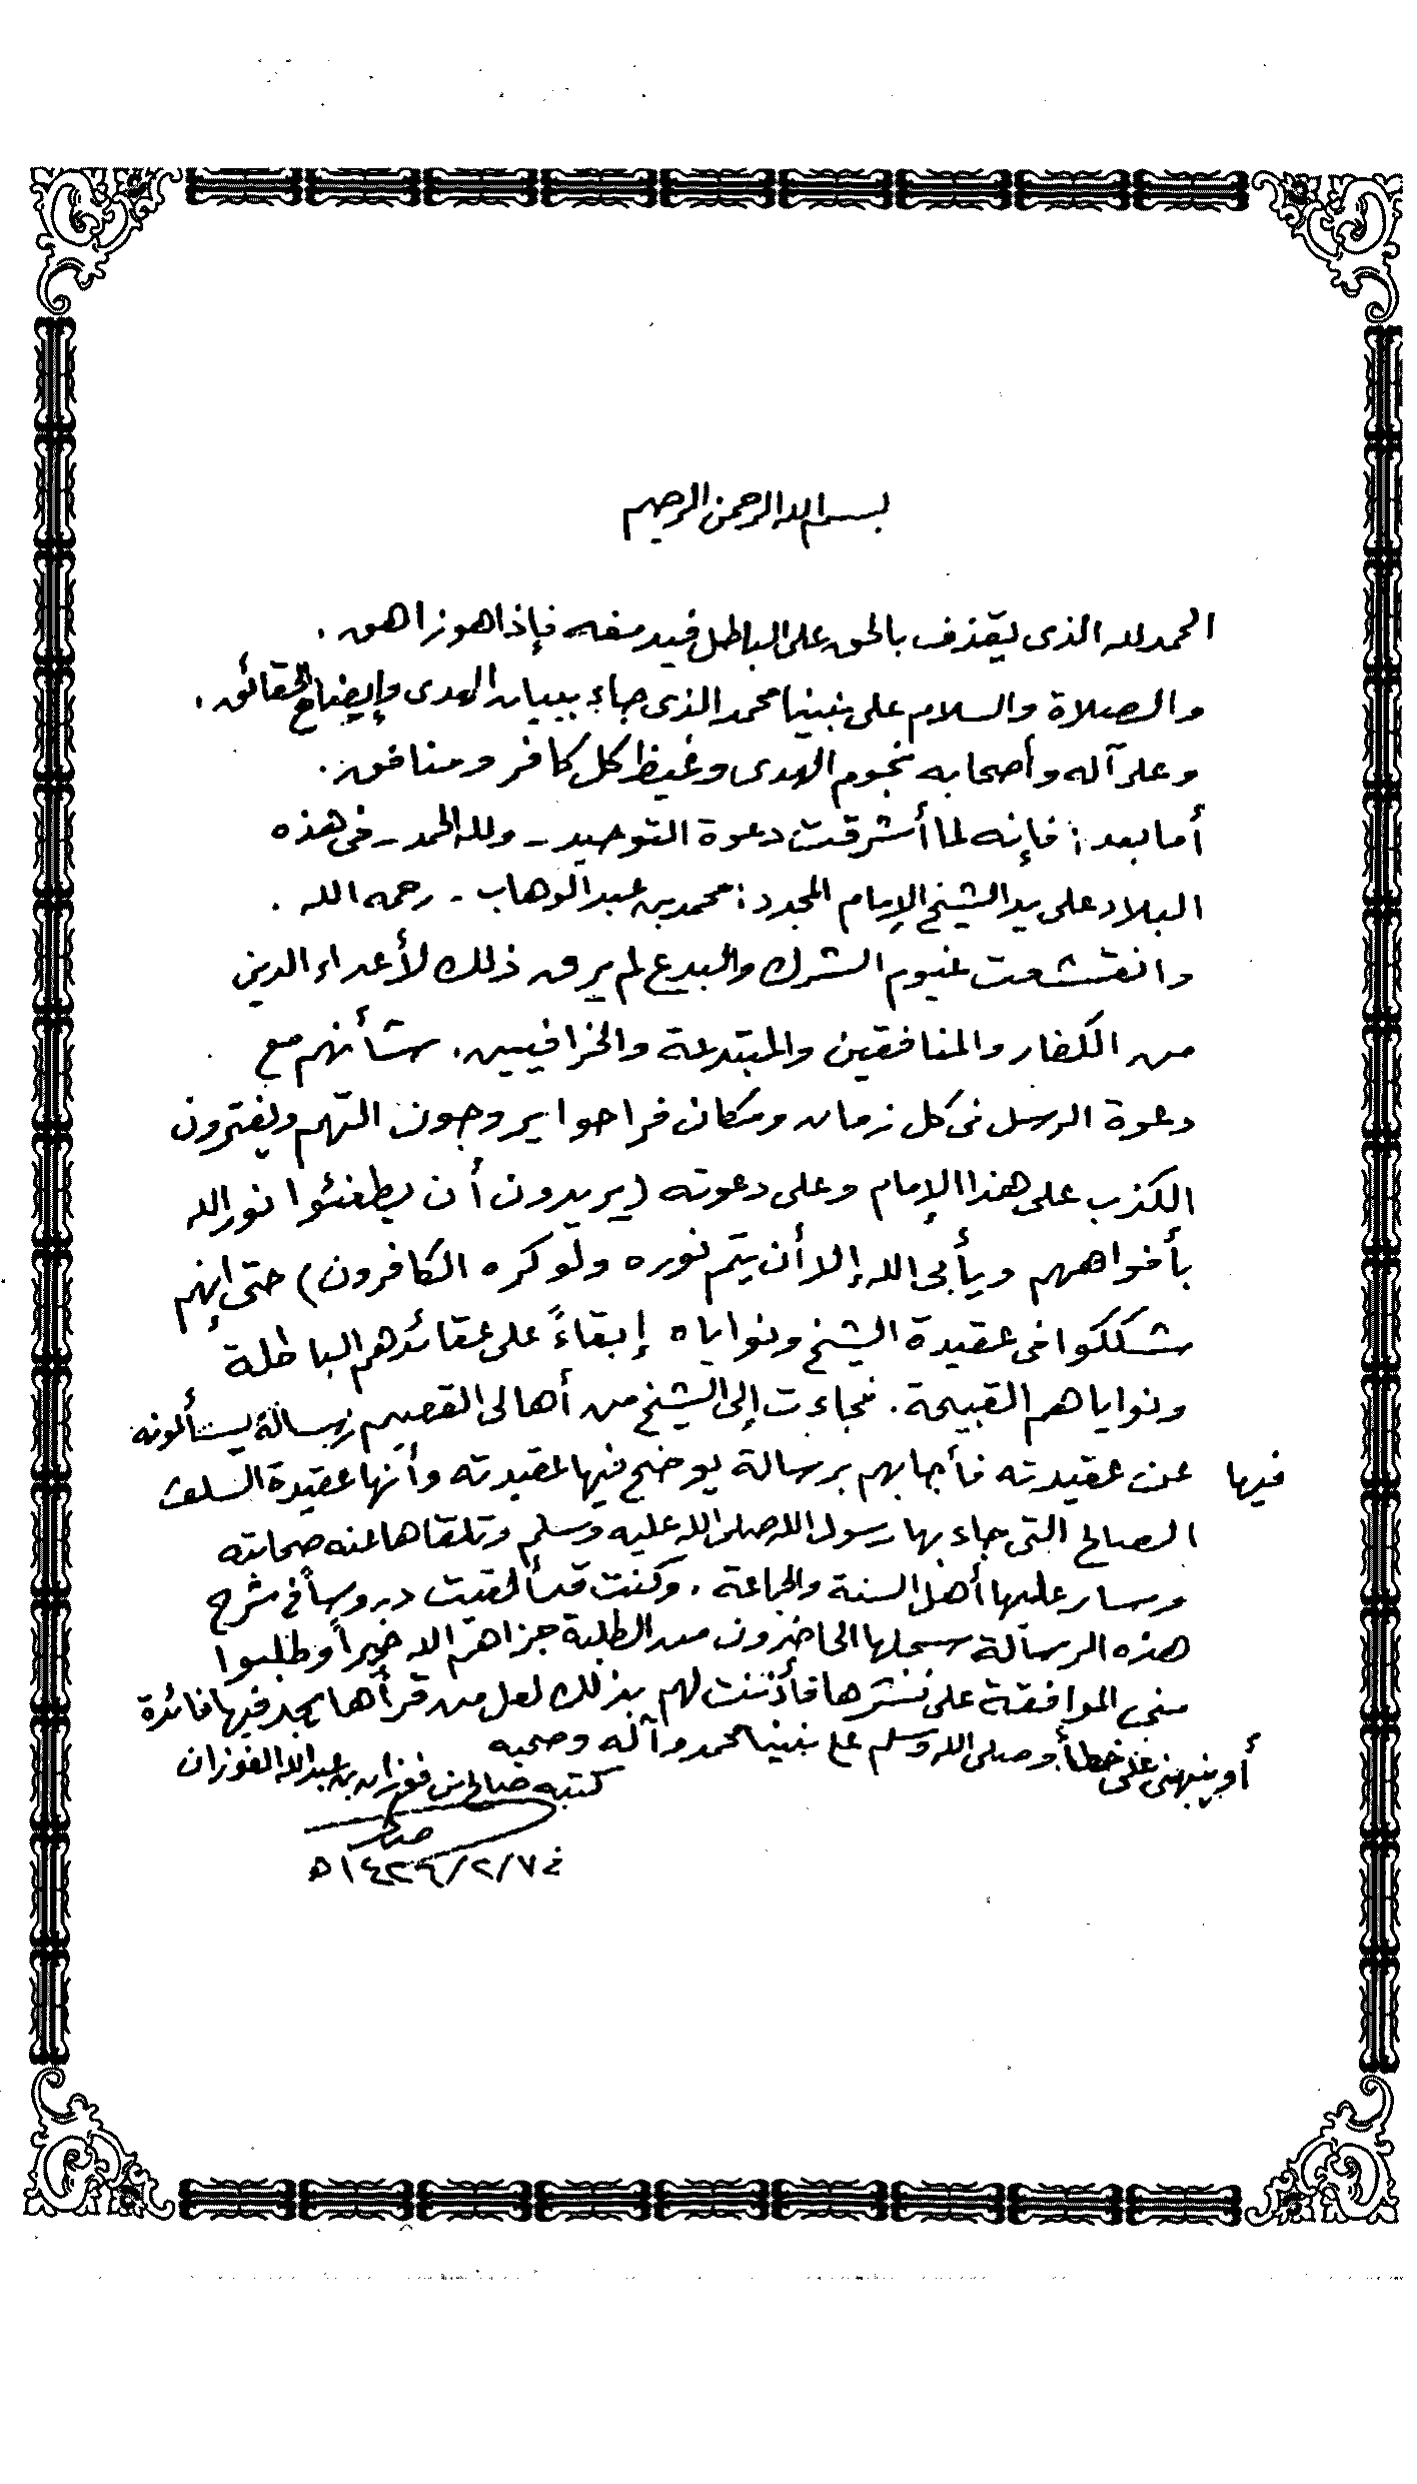 بسم الله الرحمن الرحيم
الحمد لله الذى يقذف بالحق على الباطل فيدمغه فإذا هو زاهق .
والصلاة والسلام على نبينا محمد الذى جاء ببيان الهدى وإيضاح الحقائق .
وعلى آله وأصحابه نجوم الهدى وغيظ كل كافر ومنافق .
أما بعد : فإنه لما أشرقت دعوة التوحيد - ولله الحمد - فى هذه
البلاد على يد الشيخ الإمام المجدد : محمد بن عبد الوهاب - رحمه الله .
وانقشعت غيوم الشرك والبدع لم يرق ذلك لأعداء الدين
من الكفار والمنافقين والمبتدعة والخرافيين . شأنهم مع
دعوة الرسل فى كل زمان ومكان فراحوا يروجون التهم ويفترون
الكذب على هذا الإمام وعلى دعوته (يريدون أن يطفئوا نور الله
بأفواههم ويأبى الله إلا أن يتم نوره ولو كره الكافرون) حتى إنهم
شككوا فى عقيدة الشيخ ونواياه إبقاءً على عقائدهم الباطلة
ونواياهم القبيحة . فجاءت إلى الشيخ من أهالى القصيم رسالة يسألونه
فيها عن عقيدته فأجابهم برسالة يوضح فيها عقيدته وأنها عقيدة السلف
الصالح التى جاء بها رسول الله صلى الله عليه وسلم وتلقاها عنه صحابته
وسار عليها أهل السنة والجماعة . وكنت قد ألقيت دروساً فى شرح
هذه الرسالة سجلها الحاضرون من الطلبة جزاهم الله خيراً وطلبوا
منى الموافقة على نشرها فأذنت لهم بذلك لعل من قرأها يجد فيها فائدة
أو ينبهنى على خطأ وصلى الله وسلم على نبينا محمد وآله وصحبه
كتبه صالح بن فوزان بن عبد الله الفوزان
فى ١٤٢٦/٢/٧هـ